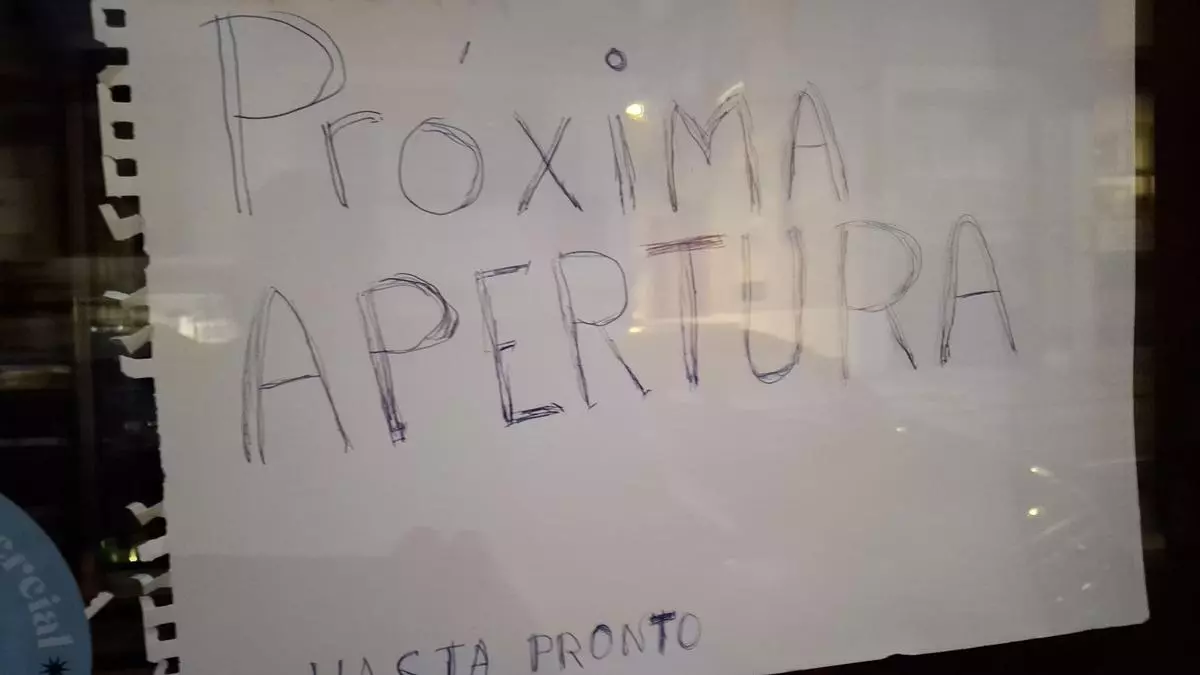 Próxima
APERTURA
HASTA PRONTO
ercial